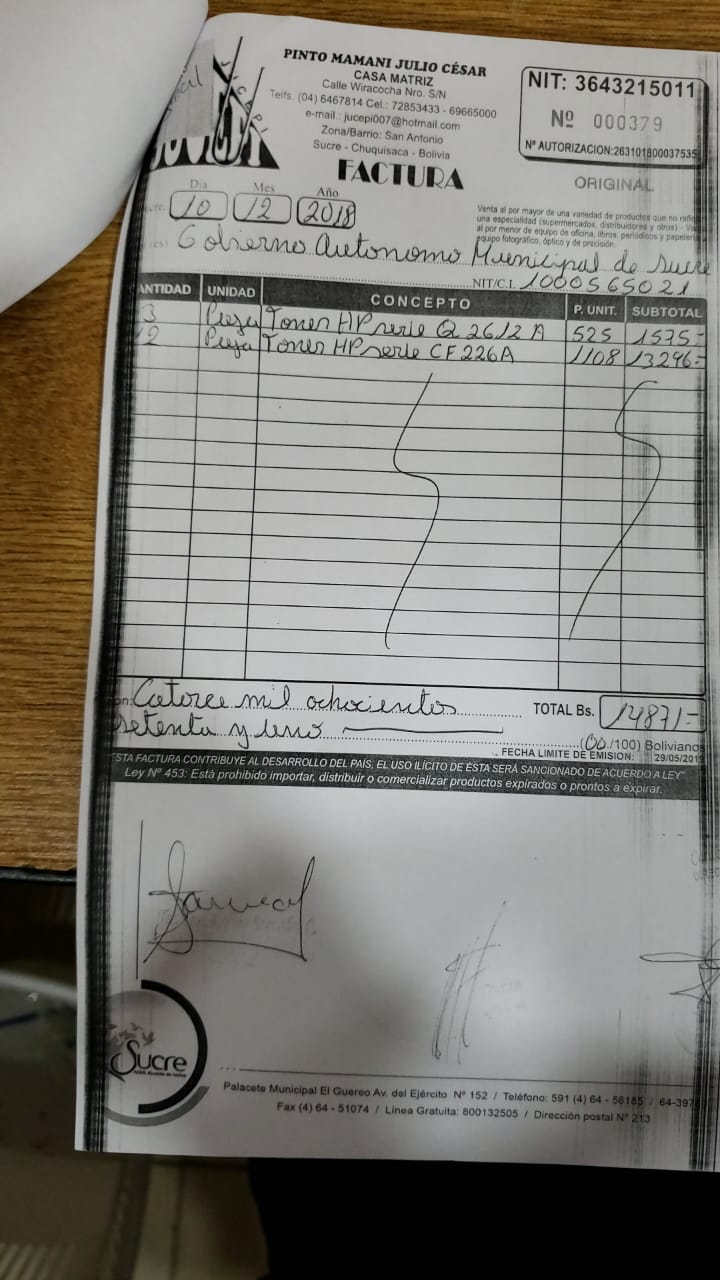 PINTO MAMANI JULIO CÉSAR
CASA MATRIZ
Calle Wiracocha Nro. S/N
Telfs. (04) 6467814 Cel.: 72853433 - 69665000
e-mail.: jucepi007@hotmail.com
Zona/Barrio: San Antonio
Sucre - Chuquisaca - Bolivia
FACTURA
NIT: 3643215011
Nº 000379
Nº AUTORIZACION:263101800037535
ORIGINAL
Venta al por mayor de una variedad de productos que no
una especialidad (supermercados, distribuidores y otros) -
al por menor de equipo de oficina, libros, periódicos y
equipo fotográfico, óptico y de precisión.
Dia Mes Año
10 12 2018
Gobierno Autonomo Municipal de Sucre
NIT/C.I. 1000565021
ANTIDAD UNIDAD CONCEPTO P. UNIT. SUBTOTAL
3 Pieza Toner HP serie Q 2612 A 525 1575-
12 Pieza Toner HP serie CF 226A 1108 13296-
on: Catorce mil ochocientos TOTAL Bs. 14871-
setenta y uno (00/100) Bolivianos
FECHA LIMITE DE EMISION: 29/05/2019
"ESTA FACTURA CONTRIBUYE AL DESARROLLO DEL PAÍS, EL USO ILÍCITO DE ÉSTA SERÁ SANCIONADO DE ACUERDO A LEY"
Ley Nº 453: Está prohibido importar, distribuir o comercializar productos expirados o prontos a expirar.
Sucre
Palacete Municipal El Guereo Av. del Ejército Nº 152 / Teléfono: 591 (4) 64 - 56185 / 64-397
Fax (4) 64 - 51074 / Línea Gratuita: 800132505 / Dirección postal Nº 213